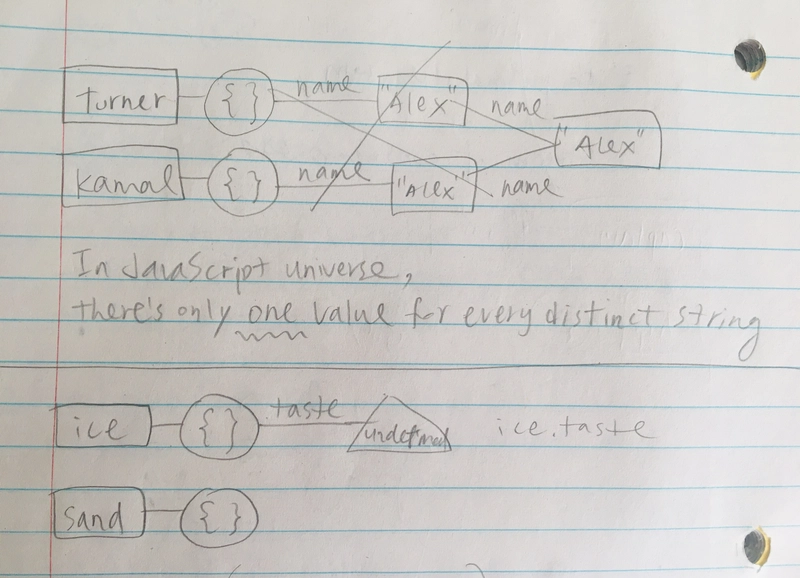 turner { } name "Alex" name "Alex"
kamal { } name "Alex" name
In JavaScript universe,
there's only one value for every distinct string
ice { } taste undefined ice.taste
sand { }